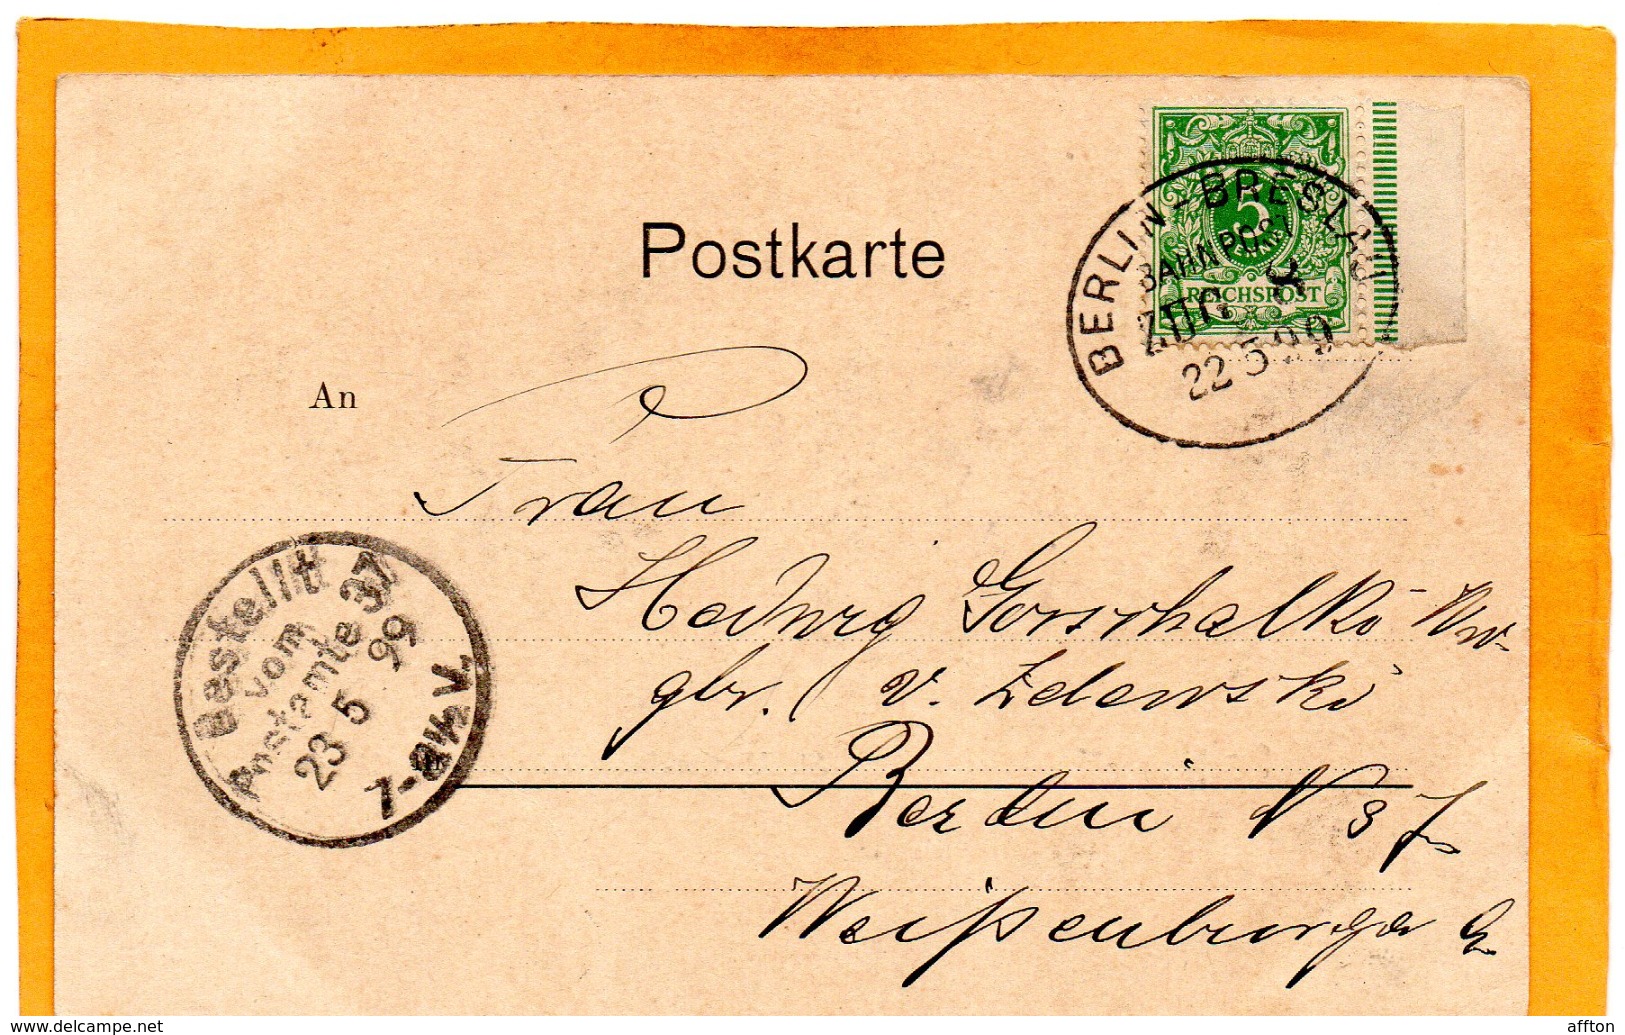 Postkarte
5
REICHSPOST
BERLIN-BRESLAU
BAHNPOST
ZUG 3
22 5 99
An
Frau
Hedwig Gorschalki Ww.
gbr. v. Zelewski
Berlin N 37
Weißenburger
Bestellt
vom
Postamte 37
23 5 99
7-8½V.
www.delcampe.net
affton